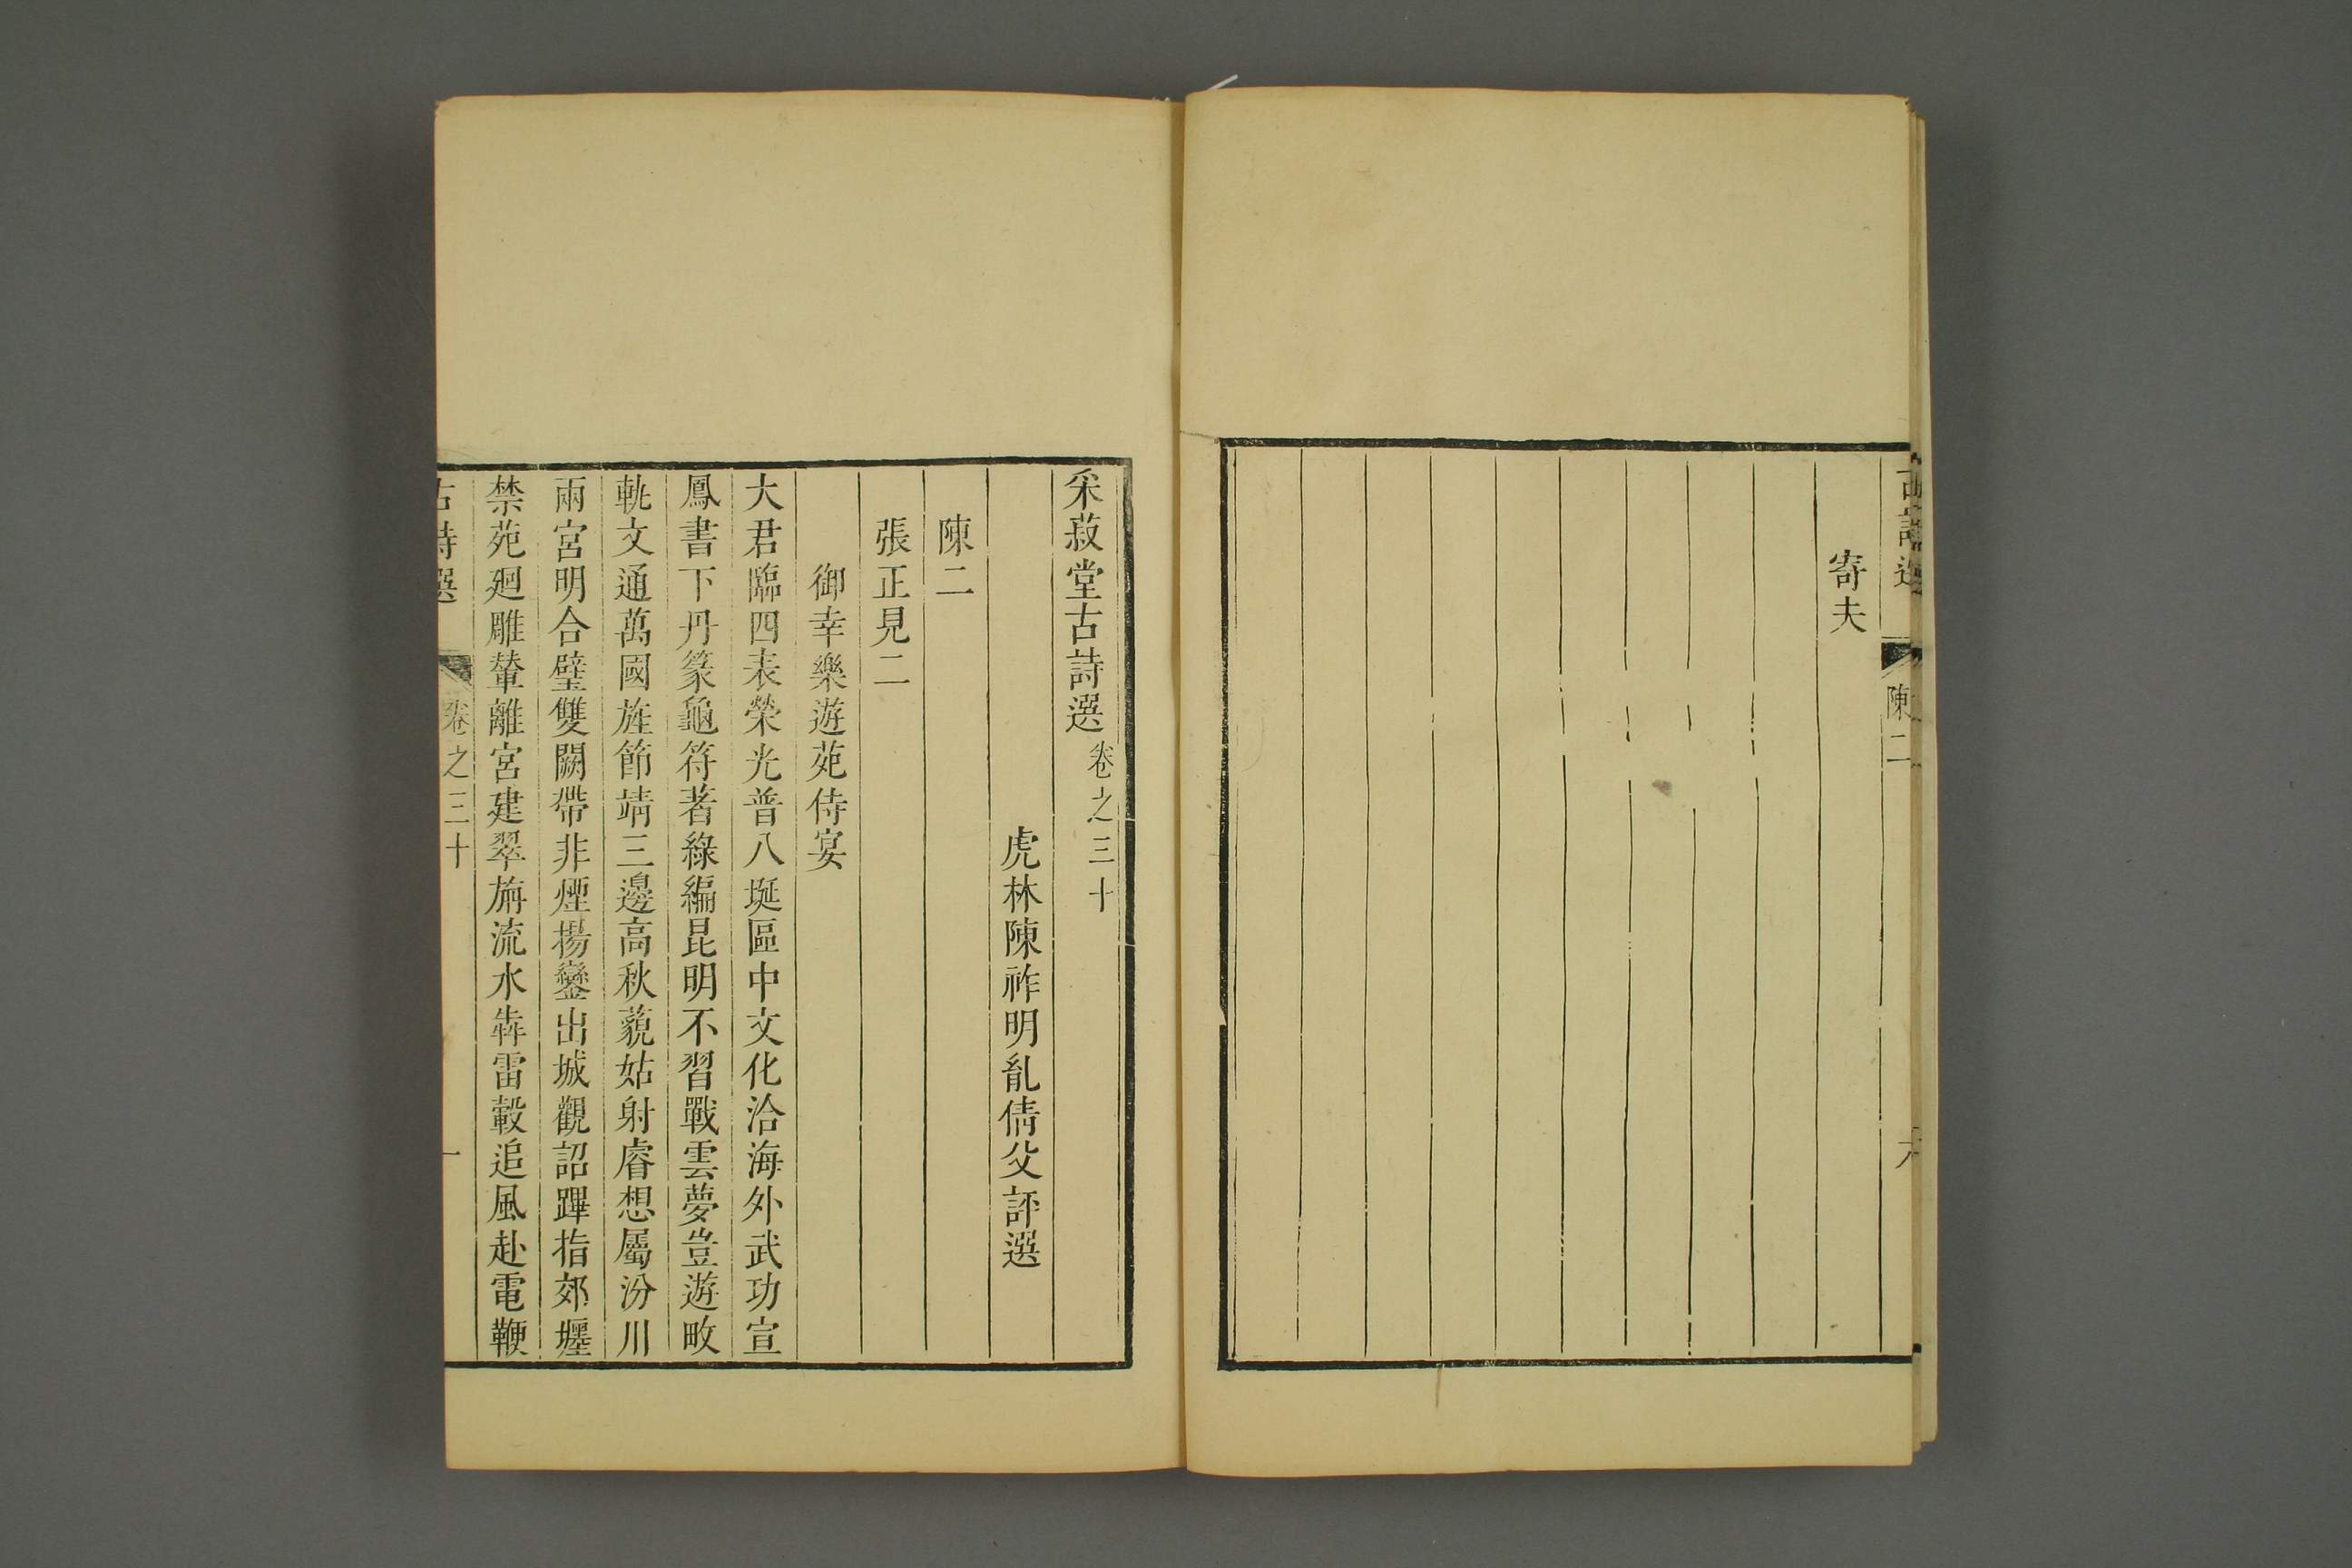 古詩選 陳二 六
寄夫
采菽堂古詩選卷之三十
虎林陳祚明胤倩父評選
陳二
張正見二
御幸樂遊苑侍宴
大君臨四表榮光普八埏區中文化洽海外武功宣
鳳書下丹篆龜符著綠編昆明不習戰雲夢豈遊畋
軌文通萬國旌節靖三邊高秋藐姑射睿想屬汾川
兩宮明合璧雙闕帶非煙揚鑾出城觀詔蹕指郊壥
禁苑廻雕輦離宮建翠旃流水犇雷轂追風赴電鞭
古詩選 卷之三十 一